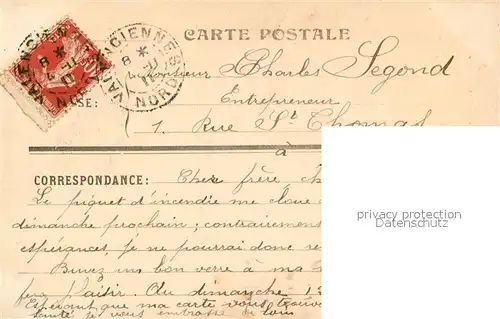 CARTE POSTALE
VALENCIENNES
NORD
Monsieur Charles Segond
Entrepreneur
1, Rue St Thomas
à
CORRESPONDANCE: Cher frère,
Le piquet d'incendie me cloue
dimanche prochain; contrairement
espérances, je ne pourrai donc
Buvez un bon verre à ma
plaisir. Au dimanche 13
Espérant que ma carte vous
santé je vous embrasse
privacy protection
Datenschutz